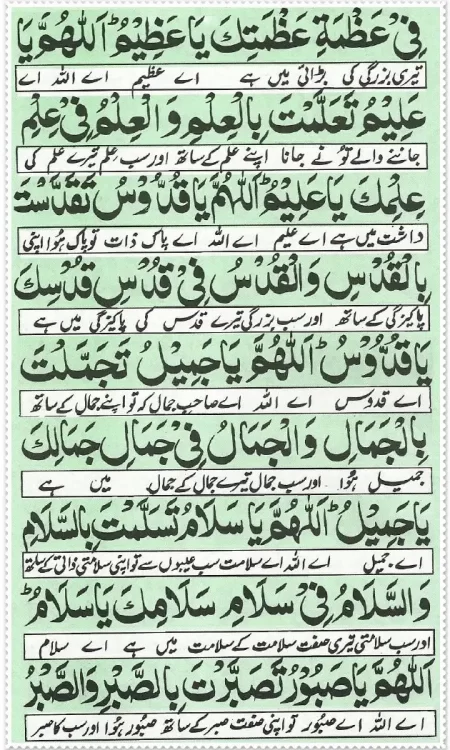 فِیْ عَظْمَةِ عَظْمَتِكَ یَا عَظِیْمُ ؕ اَللّٰهُمَّ یَا
تیری بزرگی کی بڑائی میں ہے اے عظیم اے اللہ اے
عَلِیْمُ تَعَلَّمْتَ بِالْعِلْمِ وَ الْعِلْمُ فِیْ عِلْمِ
جاننے والے تُو نے جانا اپنے علم کے ساتھ اور سب علم تیرے علم کی
عِلْمِكَ یَا عَلِیْمُ ؕ اَللّٰهُمَّ یَا قُدُّوْسُ تَقَدَّسْتَ
داشت میں ہے اے علیم اے اللہ اے پاس ذات تو پاک ہُوا اپنی
بِالْقُدْسِ وَ الْقُدْسُ فِیْ قُدْسِ قُدْسِكَ
پاکیزگی کے ساتھ اور سب بزرگی تیرے قدس کی پاکیزگی میں ہے
یَا قُدُّوْسُ ؕ اَللّٰهُمَّ یَا جَمِیْلُ تَجَمَّلْتَ
اے قدوس اے اللہ اے صاحبِ جمال کہ تو اپنے جمال کے ساتھ
بِالْجَمَالِ وَ الْجَمَالُ فِیْ جَمَالِ جَمَالِكَ
جمیل ہُوا اور سب جمال تیرے جمال کے جمال میں ہے
یَا جَمِیْلُ ؕ اَللّٰهُمَّ یَا سَلَامُ تَسَلَّمْتَ بِالسَّلَامِ
اے جمیل اے اللہ اے سلامت سب عیبوں سے تو اپنی سلامتی ذاتی کے ساتھ
وَ السَّلَامُ فِیْ سَلَامِ سَلَامِكَ یَا سَلَامُ ؕ
اور سب سلامتی تیری صفت سلامت کے سلامت میں ہے اے سلام
اَللّٰهُمَّ یَا صَبُوْرُ تَصَبَّرْتَ بِالصَّبْرِ وَ الصَّبْرُ
اے اللہ اے صبور تو اپنی صفت صبر کے ساتھ صبور ہُوا اور سب کا صبر